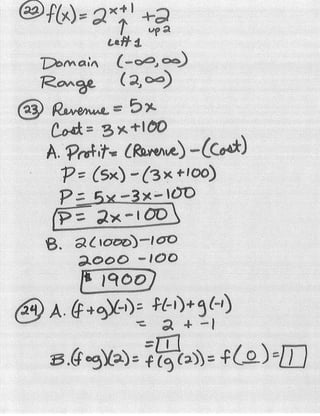 22 f(x) = 2^(x+1) + 2
↑ up 2
Left 1
Domain (-∞, ∞)
Range (2, ∞)
23 Revenue = 5x
Cost = 3x+100
A. Profit = (Revenue) - (Cost)
P = (5x) - (3x+100)
P = 5x-3x-100
P = 2x-100
B. 2(1000)-100
2000 -100
$ 1900
24 A. (f+g)(-1) = f(-1)+g(-1)
= 2 + -1
= 1
B. (f∘g)(2) = f(g(2)) = f(0) = 1